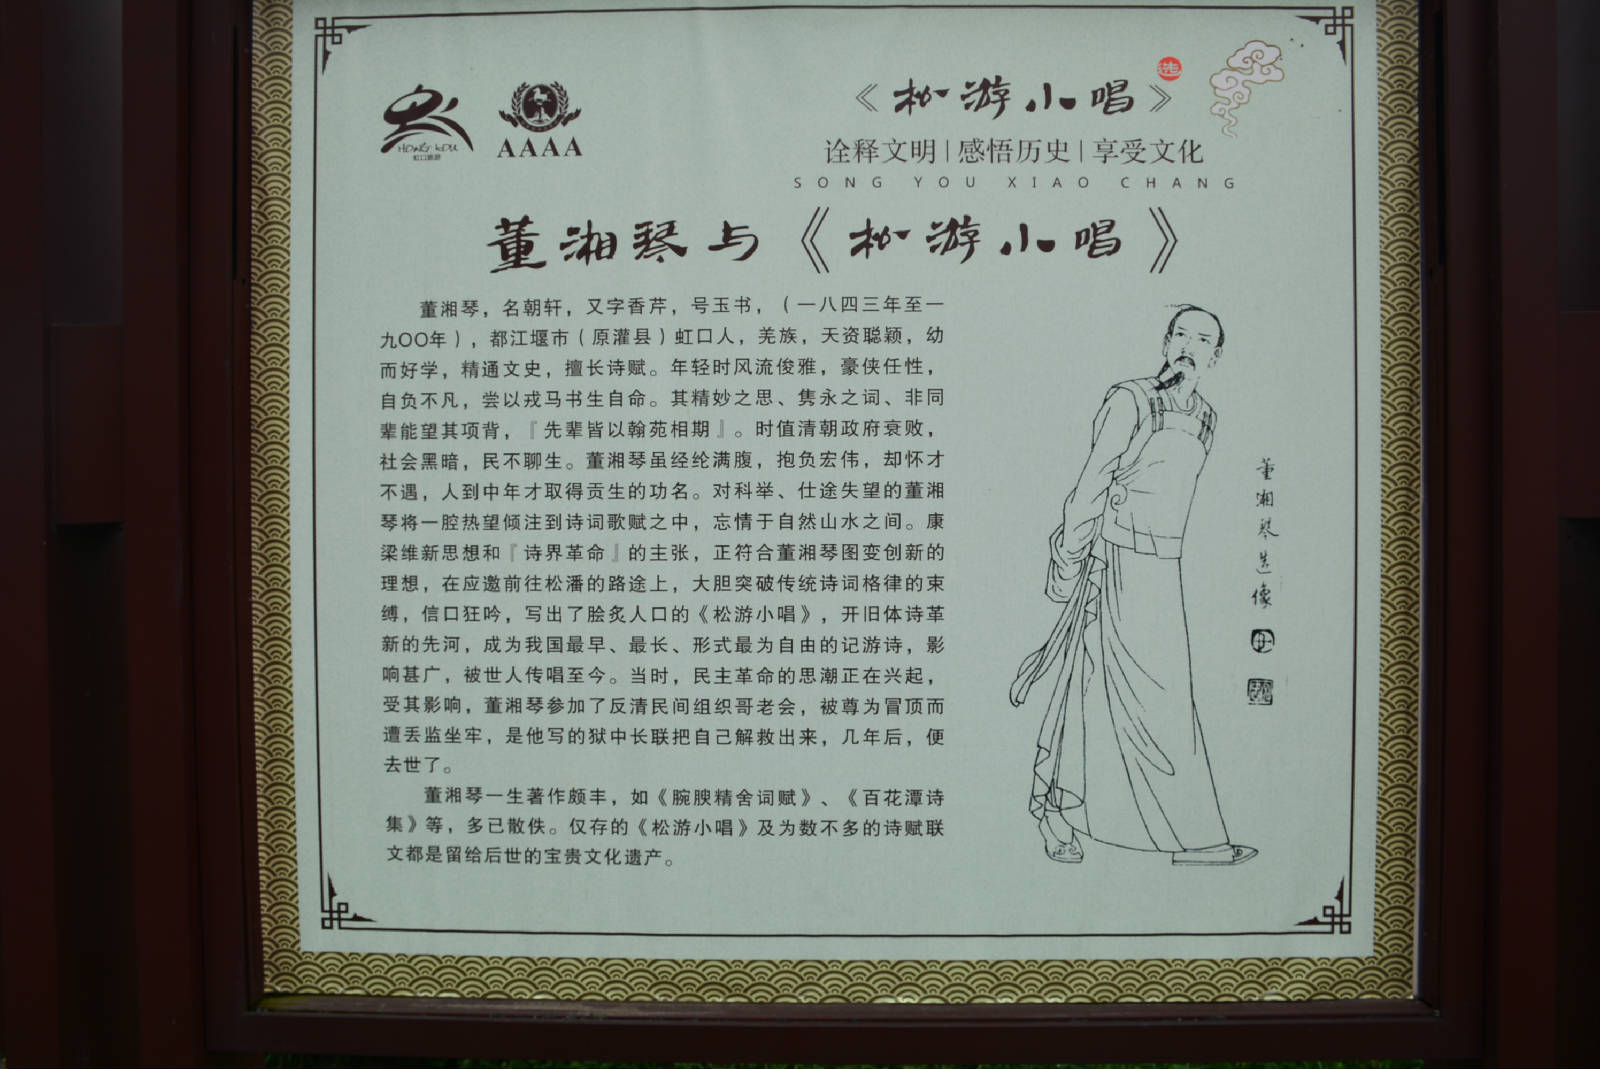 HONG KOU
虹口旅游
AAAA
《松游小唱》
选
诠释文明|感悟历史|享受文化
SONG YOU XIAO CHANG
董湘琴与《松游小唱》
董湘琴，名朝轩，又字香芹，号玉书，（一八四三年至一
九〇〇年），都江堰市（原灌县）虹口人，羌族，天资聪颖，幼
而好学，精通文史，擅长诗赋。年轻时风流俊雅，豪侠任性，
自负不凡，尝以戎马书生自命。其精妙之思、隽永之词、非同
辈能望其项背，『先辈皆以翰苑相期』。时值清朝政府衰败，
社会黑暗，民不聊生。董湘琴虽经纶满腹，抱负宏伟，却怀才
不遇，人到中年才取得贡生的功名。对科举、仕途失望的董湘
琴将一腔热望倾注到诗词歌赋之中，忘情于自然山水之间。康
梁维新思想和『诗界革命』的主张，正符合董湘琴图变创新的
理想，在应邀前往松潘的路途上，大胆突破传统诗词格律的束
缚，信口狂吟，写出了脍炙人口的《松游小唱》，开旧体诗革
新的先河，成为我国最早、最长、形式最为自由的记游诗，影
响甚广，被世人传唱至今。当时，民主革命的思潮正在兴起，
受其影响，董湘琴参加了反清民间组织哥老会，被尊为冒顶而
遭丢监坐牢，是他写的狱中长联把自己解救出来，几年后，便
去世了。
董湘琴一生著作颇丰，如《腕腴精舍词赋》、《百花潭诗
集》等，多已散佚。仅存的《松游小唱》及为数不多的诗赋联
文都是留给后世的宝贵文化遗产。
董湘琴造像